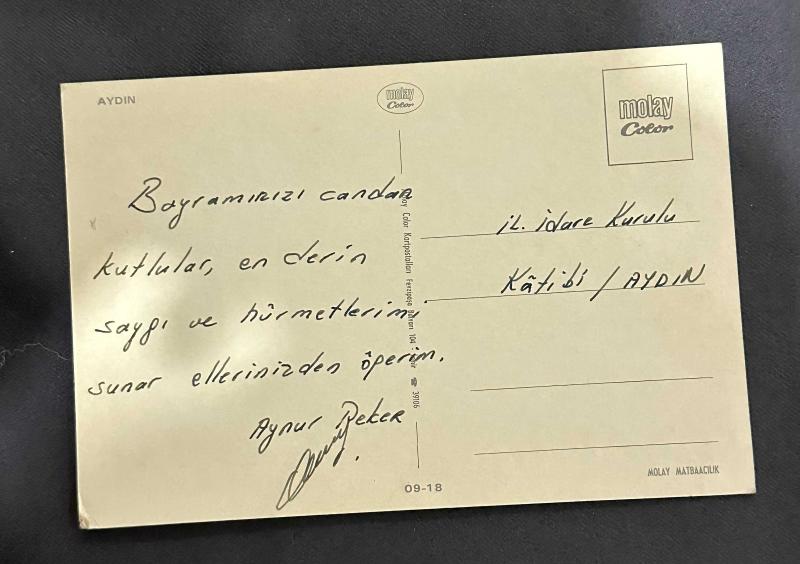 AYDIN
molay
Color
molay
Color
Bayramınızı candan
kutlular, en derin
saygı ve hürmetlerimi
sunar ellerinizden öperim.
Aynur
Color Kartpostalları Fevzipaşa Bulvarı 104
39106
İL. İdare Kurulu
Kâtibi / AYDIN
09-18
MOLAY MATBAACILIK